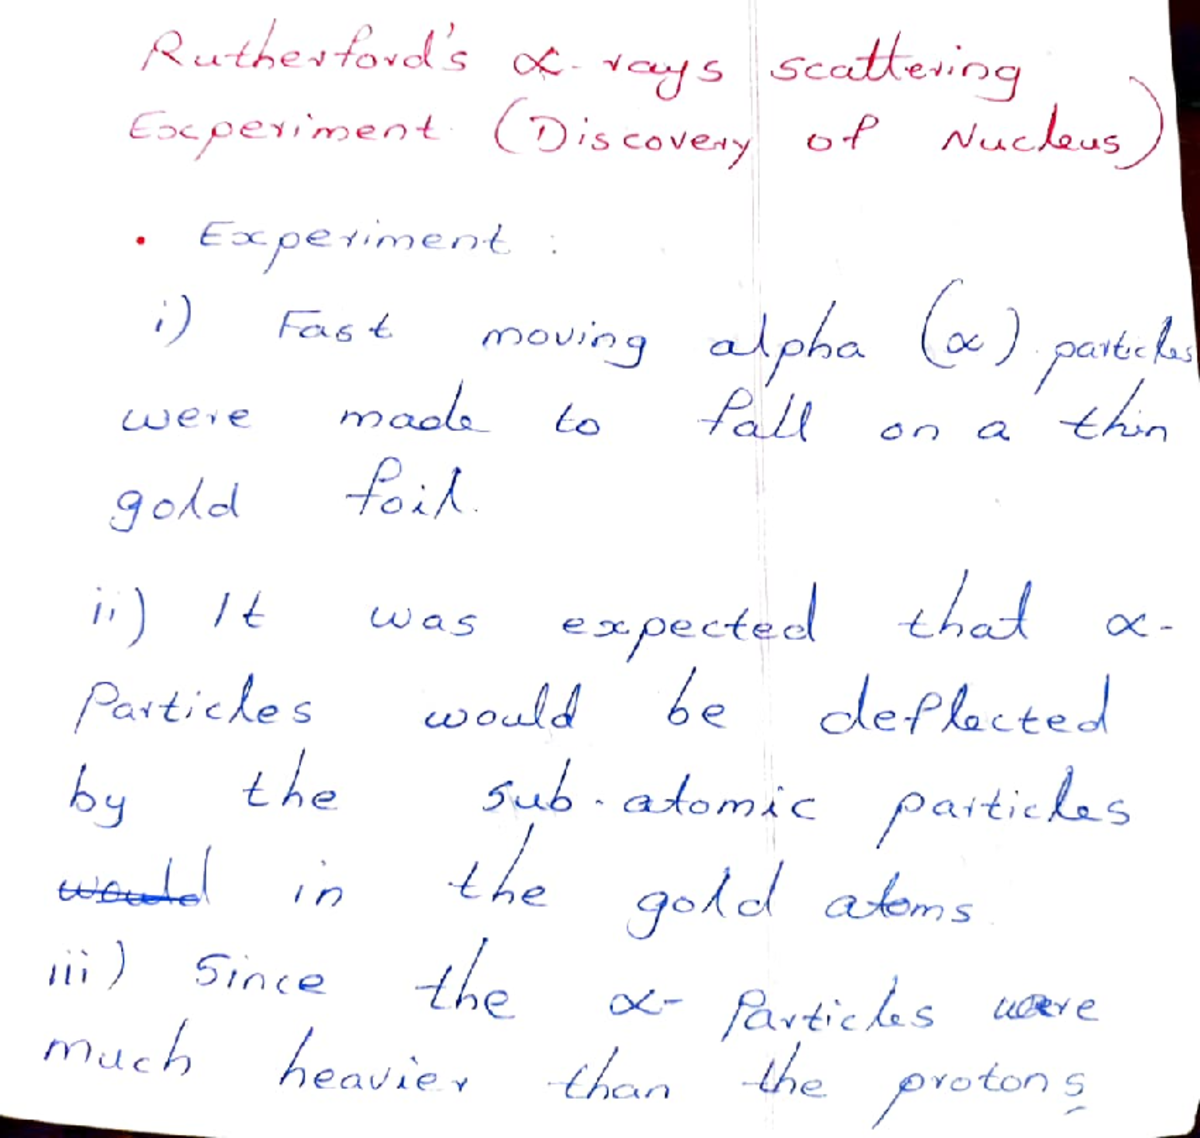 Rutherford's α-rays scattering
Experiment (Discovery of Nucleus)
• Experiment :
i) Fast moving alpha (α) particles
were made to fall on a thin
gold foil.
ii) It was expected that α-
Particles would be deflected
by the sub-atomic particles
would in the gold atoms.
iii) Since the α- Particles were
much heavier than the protons